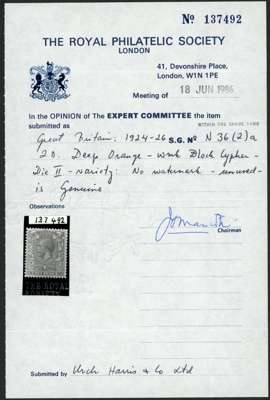 No 137492
THE ROYAL PHILATELIC SOCIETY
LONDON
41, Devonshire Place,
London, W1N 1PE
Meeting of 18 JUN 1986
In the OPINION of The EXPERT COMMITTEE the item
submitted as S.G. No N36(2)a
Great Britain: 1924-26
2D. Deep Orange - wmk Block Cypher -
Die II - variety: No watermark - unused -
is Genuine
Observations
137492
Chairman
THE ROYAL
Submitted by Urch Harris & Co Ltd